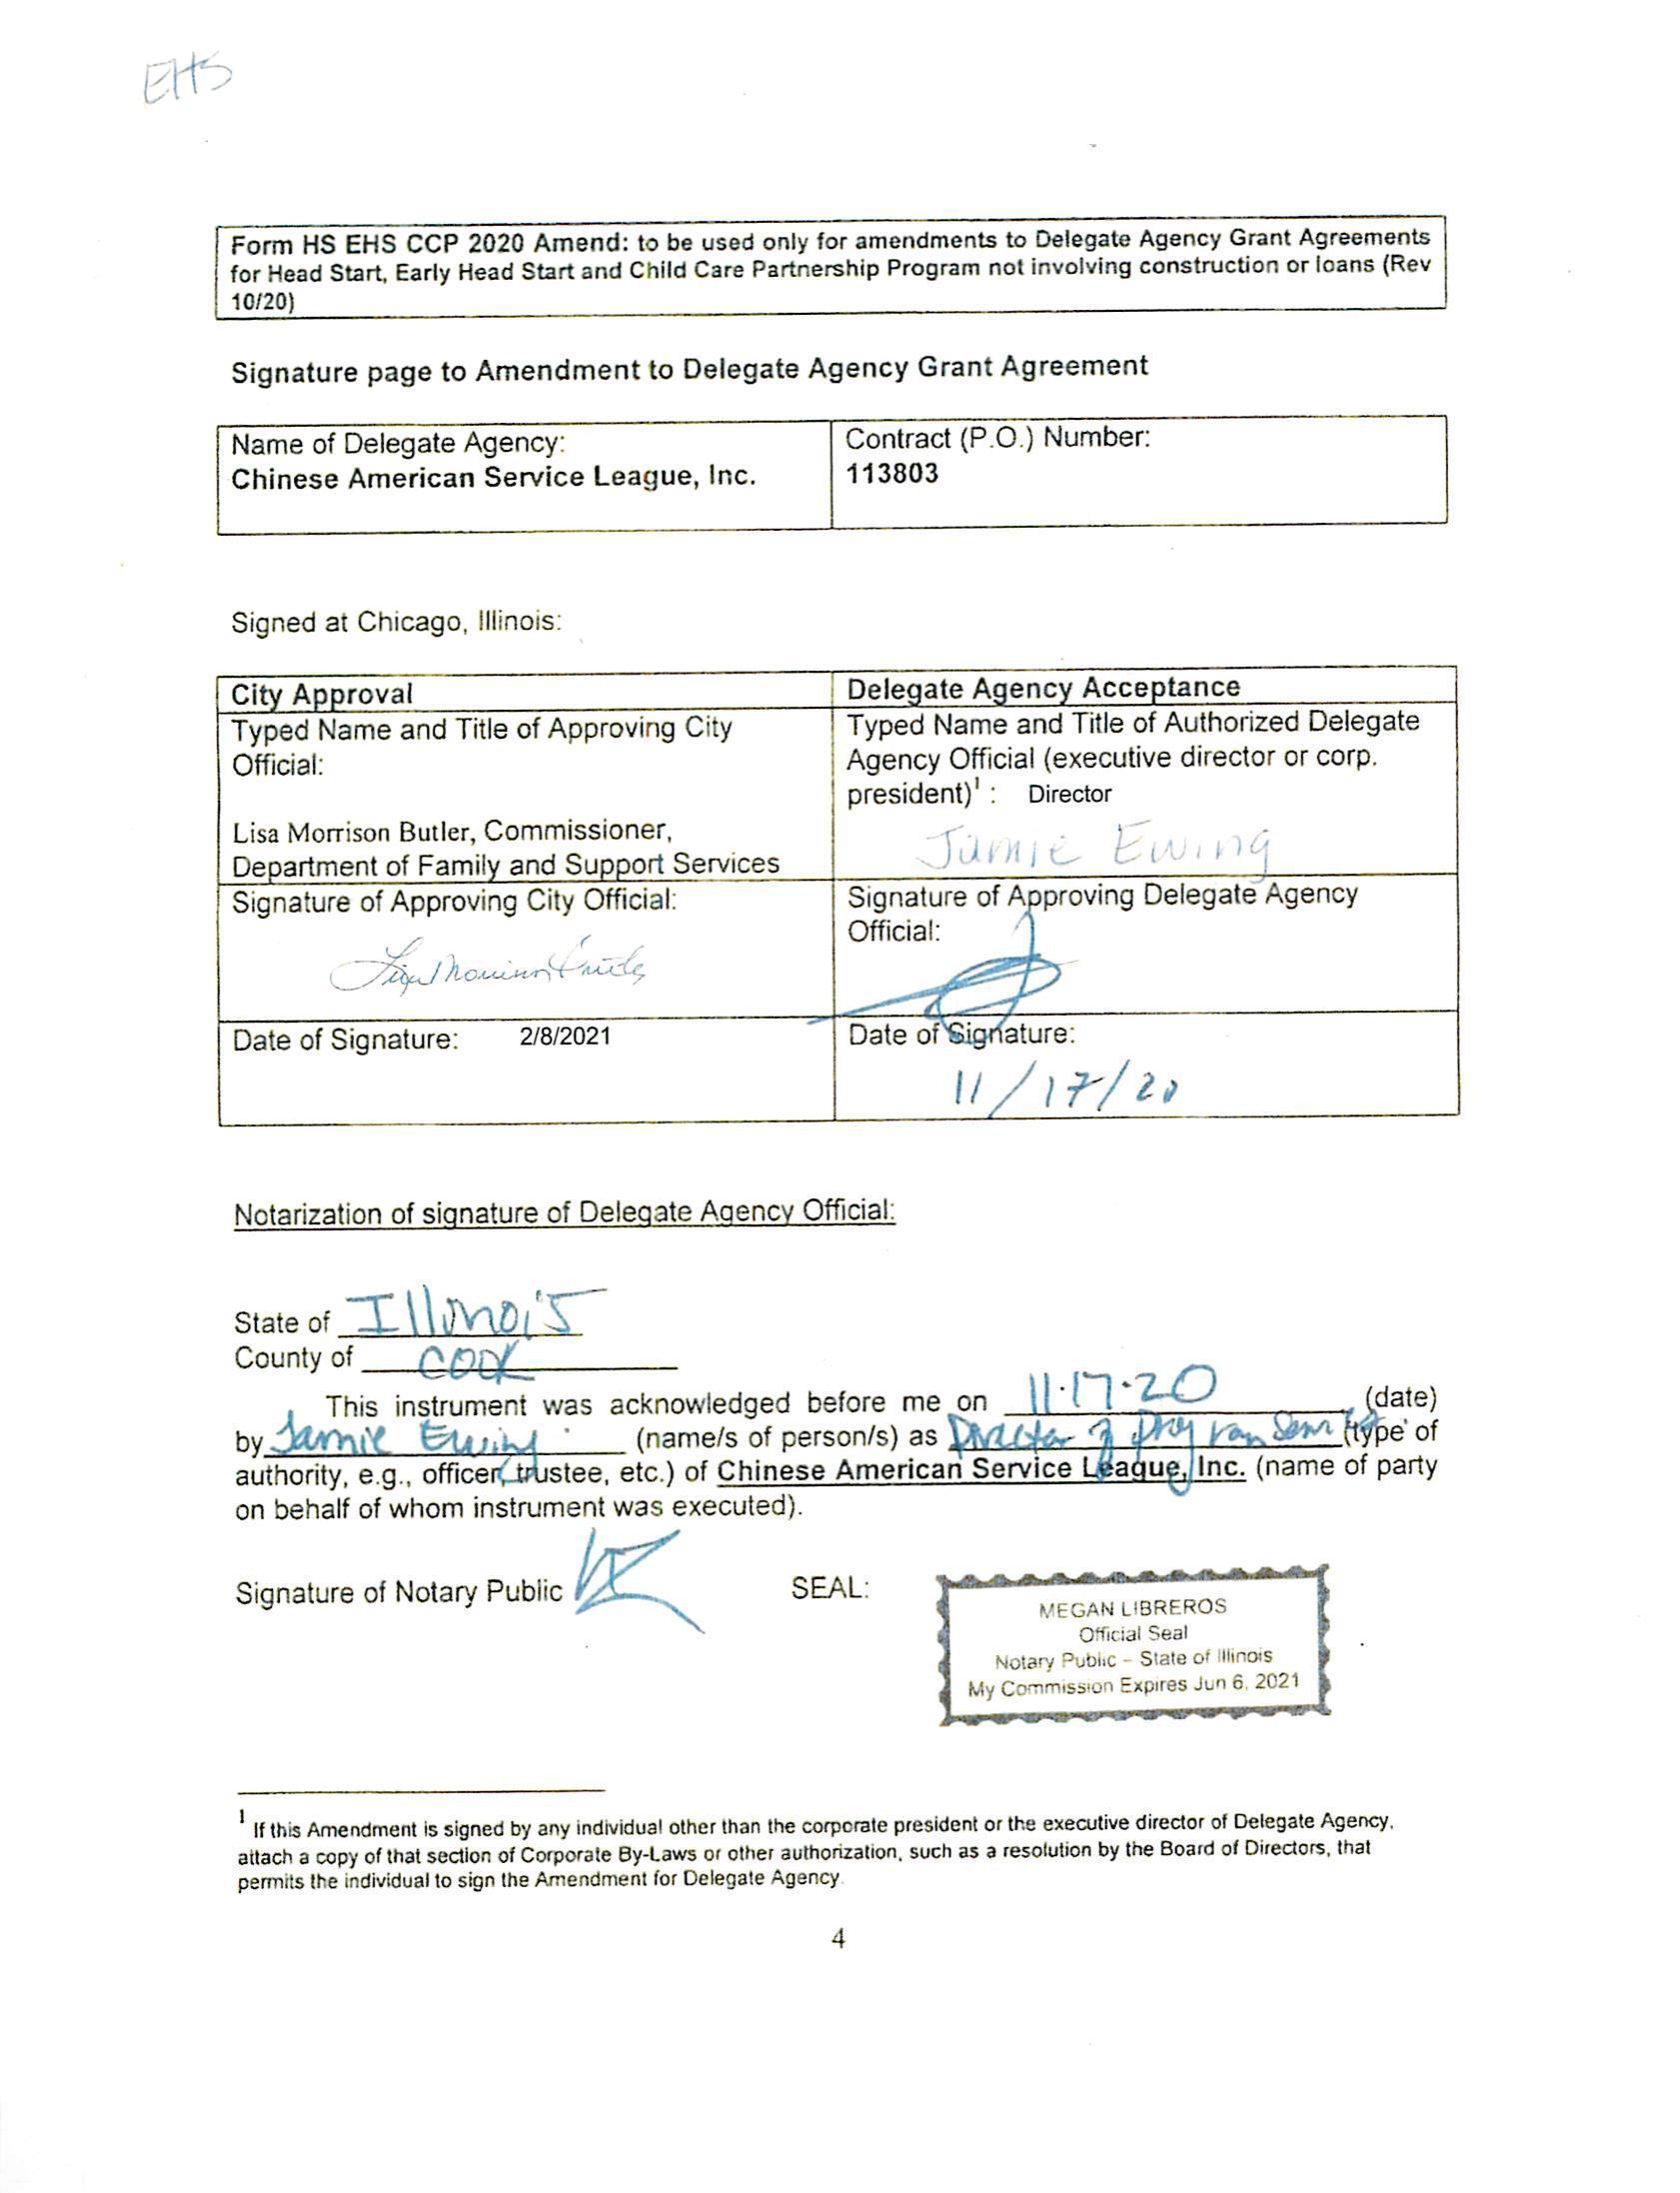 EHS
Form HS EHS CCP 2020 Amend: to be used only for amendments to Delegate Agency Grant Agreements
for Head Start, Early Head Start and Child Care Partnership Program not involving construction or loans (Rev
10/20)
Signature page to Amendment to Delegate Agency Grant Agreement
Name of Delegate Agency:
Chinese American Service League, Inc.
Contract (P.O.) Number:
113803
Signed at Chicago, Illinois:
City Approval
Typed Name and Title of Approving City
Official:
Lisa Morrison Butler, Commissioner,
Department of Family and Support Services
Delegate Agency Acceptance
Typed Name and Title of Authorized Delegate
Agency Official (executive director or corp.
president)¹ : Director
Jamie Ewing
Signature of Approving City Official:
Lisa Morrison Butler
Signature of Approving Delegate Agency
Official:
Date of Signature: 2/8/2021
Date of Signature:
11/17/20
Notarization of signature of Delegate Agency Official:
State of Illinois
County of COOK
This instrument was acknowledged before me on 11.17.20 (date)
by Jamie Ewing (name/s of person/s) as Director of program (type of
authority, e.g., officer, trustee, etc.) of Chinese American Service League, Inc. (name of party
on behalf of whom instrument was executed).
Signature of Notary Public
SEAL:
MEGAN LIBREROS
Official Seal
Notary Public – State of Illinois
My Commission Expires Jun 6, 2021
¹ If this Amendment is signed by any individual other than the corporate president or the executive director of Delegate Agency,
attach a copy of that section of Corporate By-Laws or other authorization, such as a resolution by the Board of Directors, that
permits the individual to sign the Amendment for Delegate Agency.
4